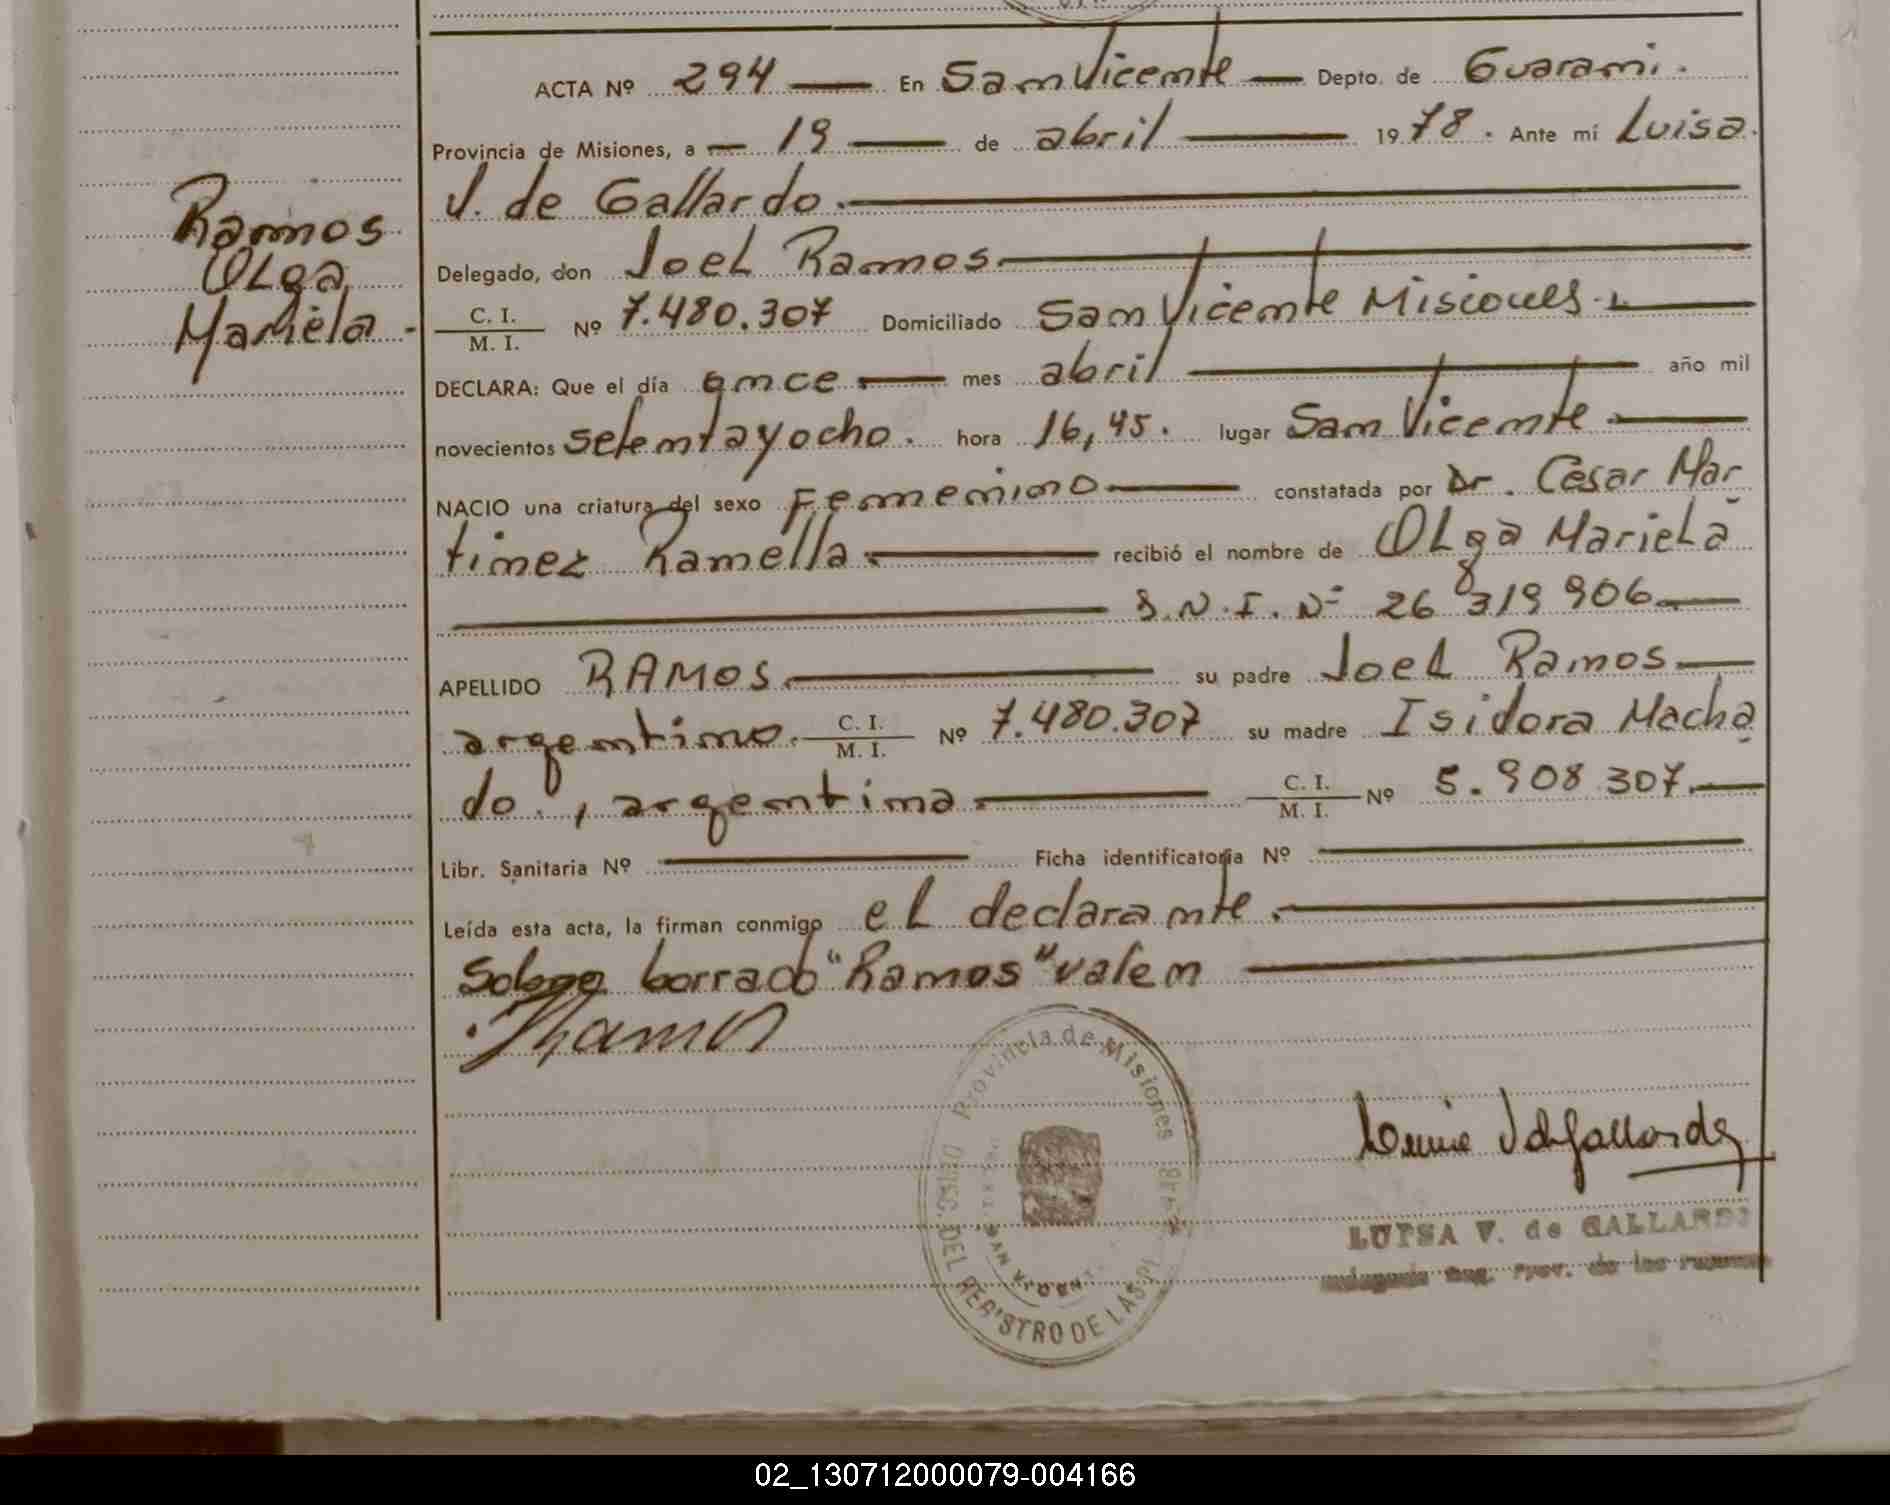 ACTA Nº 294 En San Vicente Depto. de Guarani.
Provincia de Misiones, a 19 de abril 1978. Ante mí Luisa
V. de Gallardo.
Ramos
Olga
Mariela
Delegado, don Joel Ramos
C. I.
M. I.
Nº 7.480.307 Domiciliado San Vicente Misiones
DECLARA: Que el día once mes abril año mil
novecientos setentayocho. hora 16,45. lugar San Vicente
NACIO una criatura del sexo Femenino constatada por Dr. Cesar Mar
tinez Ramella. recibió el nombre de Olga Mariela
D.N.I. Nº 26 319 906
APELLIDO RAMOS su padre Joel Ramos
argentino. C. I.
M. I.
Nº 7.480.307 su madre Isidora Macha
do., argentina C. I.
M. I.
Nº 5.908 307.
Libr. Sanitaria Nº Ficha identificatoria Nº
Leída esta acta, la firman conmigo el declarante.
borrado "Ramos" valen
Provincia de Misiones
DEL REGISTRO DE LAS
SAN VICENTE
LUISA V. de GALLARDO
02_130712000079-004166